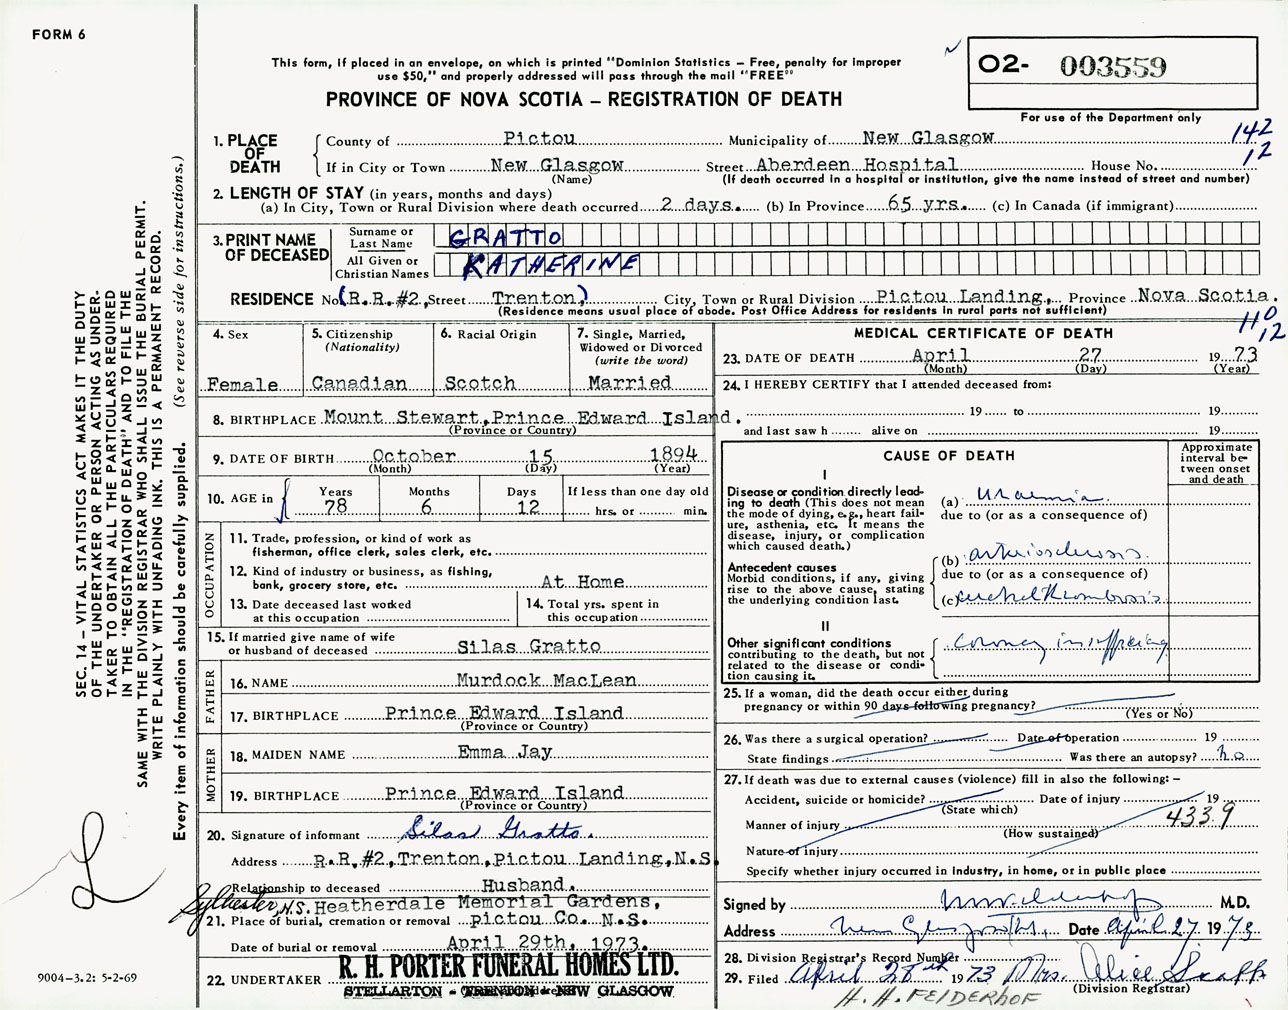 FORM 6
This form, if placed in an envelope, on which is printed "Dominion Statistics – Free, penalty for improper
use $50," and properly addressed will pass through the mail "FREE"
PROVINCE OF NOVA SCOTIA – REGISTRATION OF DEATH
O2- 003559
For use of the Department only
142
12
1. PLACE OF DEATH
County of Pictou Municipality of New Glasgow
If in City or Town New Glasgow Street Aberdeen Hospital House No.
(Name) (If death occurred in a hospital or institution, give the name instead of street and number)
2. LENGTH OF STAY (in years, months and days)
(a) In City, Town or Rural Division where death occurred 2 days. (b) In Province 65 yrs. (c) In Canada (if immigrant)
3. PRINT NAME OF DECEASED
Surname or Last Name GRATTO
All Given or Christian Names KATHERINE
RESIDENCE No. (R.R.#2, Street Trenton,) City, Town or Rural Division Pictou Landing, Province Nova Scotia.
(Residence means usual place of abode. Post Office Address for residents in rural parts not sufficient)
110
12
4. Sex Female
5. Citizenship (Nationality) Canadian
6. Racial Origin Scotch
7. Single, Married, Widowed or Divorced (write the word) Married
8. BIRTHPLACE Mount Stewart, Prince Edward Island.
(Province or Country)
9. DATE OF BIRTH October 15 1894
(Month) (Day) (Year)
10. AGE in Years 78 Months 6 Days 12 If less than one day old hrs. or min.
OCCUPATION
11. Trade, profession, or kind of work as
fisherman, office clerk, sales clerk, etc.
12. Kind of industry or business, as fishing,
bank, grocery store, etc. At Home
13. Date deceased last worked
at this occupation
14. Total yrs. spent in
this occupation
15. If married give name of wife
or husband of deceased Silas Gratto
FATHER
16. NAME Murdock MacLean
17. BIRTHPLACE Prince Edward Island
(Province or Country)
MOTHER
18. MAIDEN NAME Emma Jay
19. BIRTHPLACE Prince Edward Island
(Province or Country)
20. Signature of informant Silas Gratto.
Address R.R.#2, Trenton, Pictou Landing, N.S.
Relationship to deceased Husband.
Sylvester, N.S. Heatherdale Memorial Gardens,
21. Place of burial, cremation or removal pictou Co. N.S.
Date of burial or removal April 29th, 1973.
22. UNDERTAKER R. H. PORTER FUNERAL HOMES LTD.
STELLARTON - TRENTON - NEW GLASGOW
MEDICAL CERTIFICATE OF DEATH
23. DATE OF DEATH April 27 19 73
(Month) (Day) (Year)
24. I HEREBY CERTIFY that I attended deceased from:
19 to 19
and last saw h alive on 19
CAUSE OF DEATH
Approximate interval between onset and death
I
Disease or condition directly leading to death (This does not mean the mode of dying, e.g., heart failure, asthenia, etc. It means the disease, injury, or complication which caused death.)
(a) Uraemia
due to (or as a consequence of)
Antecedent causes
Morbid conditions, if any, giving rise to the above cause, stating the underlying condition last.
(b) arteriosclerosis
due to (or as a consequence of)
(c) thrombosis
II
Other significant conditions
contributing to the death, but not related to the disease or condition causing it.
coronary insufficiency
25. If a woman, did the death occur either during
pregnancy or within 90 days following pregnancy?
(Yes or No)
26. Was there a surgical operation? Date of operation 19
State findings Was there an autopsy? no
27. If death was due to external causes (violence) fill in also the following: –
Accident, suicide or homicide? Date of injury 19
(State which)
4339
Manner of injury
(How sustained)
Nature of injury
Specify whether injury occurred in industry, in home, or in public place
Signed by M.D.
Address New Glasgow, N.S. Date April 27 1973
28. Division Registrar's Record Number
29. Filed April 28th 1973 Mrs. Alice
(Division Registrar)
H. H. FELDERHOF
SEC. 14 – VITAL STATISTICS ACT MAKES IT THE DUTY
OF THE UNDERTAKER OR PERSON ACTING AS UNDER-
TAKER TO OBTAIN ALL THE PARTICULARS REQUIRED
IN THE "REGISTRATION OF DEATH" AND TO FILE THE
SAME WITH THE DIVISION REGISTRAR WHO SHALL ISSUE THE BURIAL PERMIT.
WRITE PLAINLY WITH UNFADING INK. THIS IS A PERMANENT RECORD.
Every item of information should be carefully supplied. (See reverse side for instructions.)
9004–3.2: 5-2-69